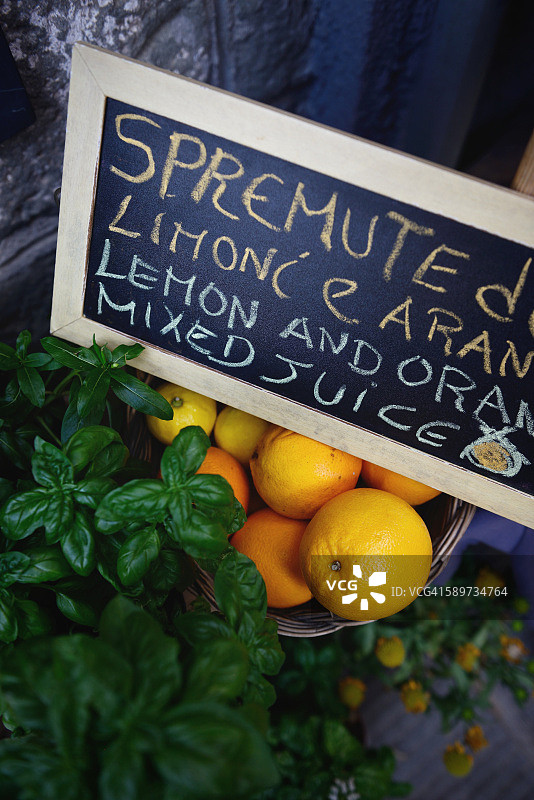 SPREMUTE di
LIMONi e ARAN
LEMON AND ORAN
MIXED JUiCE
VCG
ID:VCG41589734764